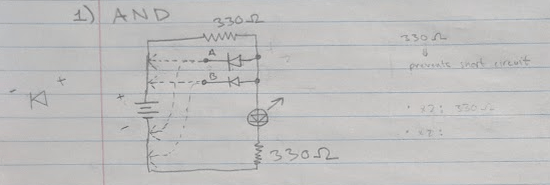 1) AND
330Ω
A
B
+
-
- +
330Ω
330Ω
prevents short circuit
• x2: 330Ω
• x2: